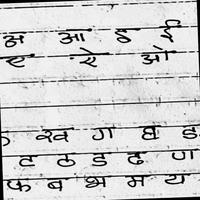 अ आ इ ई
ए ऐ ओ
ख ग घ ङ
ट ठ ड ढ ण
फ ब भ म य